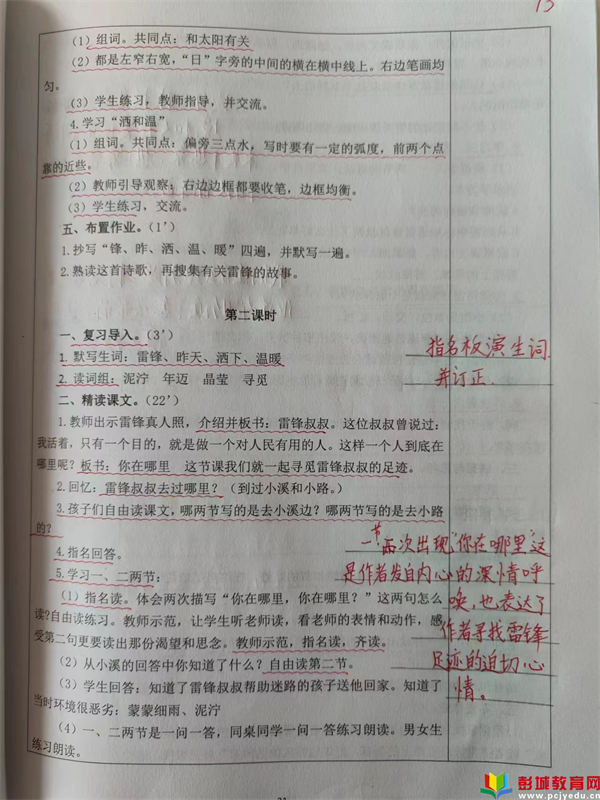 13
（1）组词。共同点：和太阳有关
（2）都是左窄右宽，“日”字旁的中间的横在横中线上。右边笔画均
匀。
（3）学生练习，教师指导，并交流。
4.学习“洒和温”
（1）组词。共同点：偏旁三点水，写时要有一定的弧度，前两个点
靠的近些。
（2）教师引导观察：右边边框都要收笔，边框均衡。
（3）学生练习，交流。
五、布置作业。（1’）
1.抄写“锋、昨、洒、温、暖”四遍，并默写一遍。
2.熟读这首诗歌，再搜集有关雷锋的故事。
第二课时
一、复习导入。（3’）
1.默写生词：雷锋、昨天、洒下、温暖
2.读词组：泥泞 年迈 晶莹 寻觅
指名板演生词
并订正.
二、精读课文。（22’）
1.教师出示雷锋真人照，介绍并板书：雷锋叔叔。这位叔叔曾说过：
我活着，只有一个目的，就是做一个对人民有用的人。这样一个人到底在
哪里呢？板书：你在哪里 这节课我们就一起寻觅雷锋叔叔的足迹。
2.回忆：雷锋叔叔去过哪里？（到过小溪和小路。）
3.孩子们自由读课文，哪两节写的是去小溪边？哪两节写的是去小路
的？
4.指名回答。
5.学习一、二两节：
（1）指名读。体会两次描写“你在哪里，你在哪里？”这两句怎么
读?自由读练习。教师示范，让学生听老师读，看老师的表情和动作，感
受第二句更要读出那份渴望和思念。教师示范，指名读，齐读。
（2）从小溪的回答中你知道了什么？自由读第二节。
（3）学生回答：知道了雷锋叔叔帮助迷路的孩子送他回家。知道了
当时环境很恶劣：蒙蒙细雨、泥泞
（4）一、二两节是一问一答，同桌同学一问一答练习朗读。男女生
练习朗读。
一节再次出现“你在哪里”这
是作者发自内心的深情呼
唤，也表达了
作者寻找雷锋
足迹的迫切心
情。
21
彭城教育网
www.pcjyedu.cn